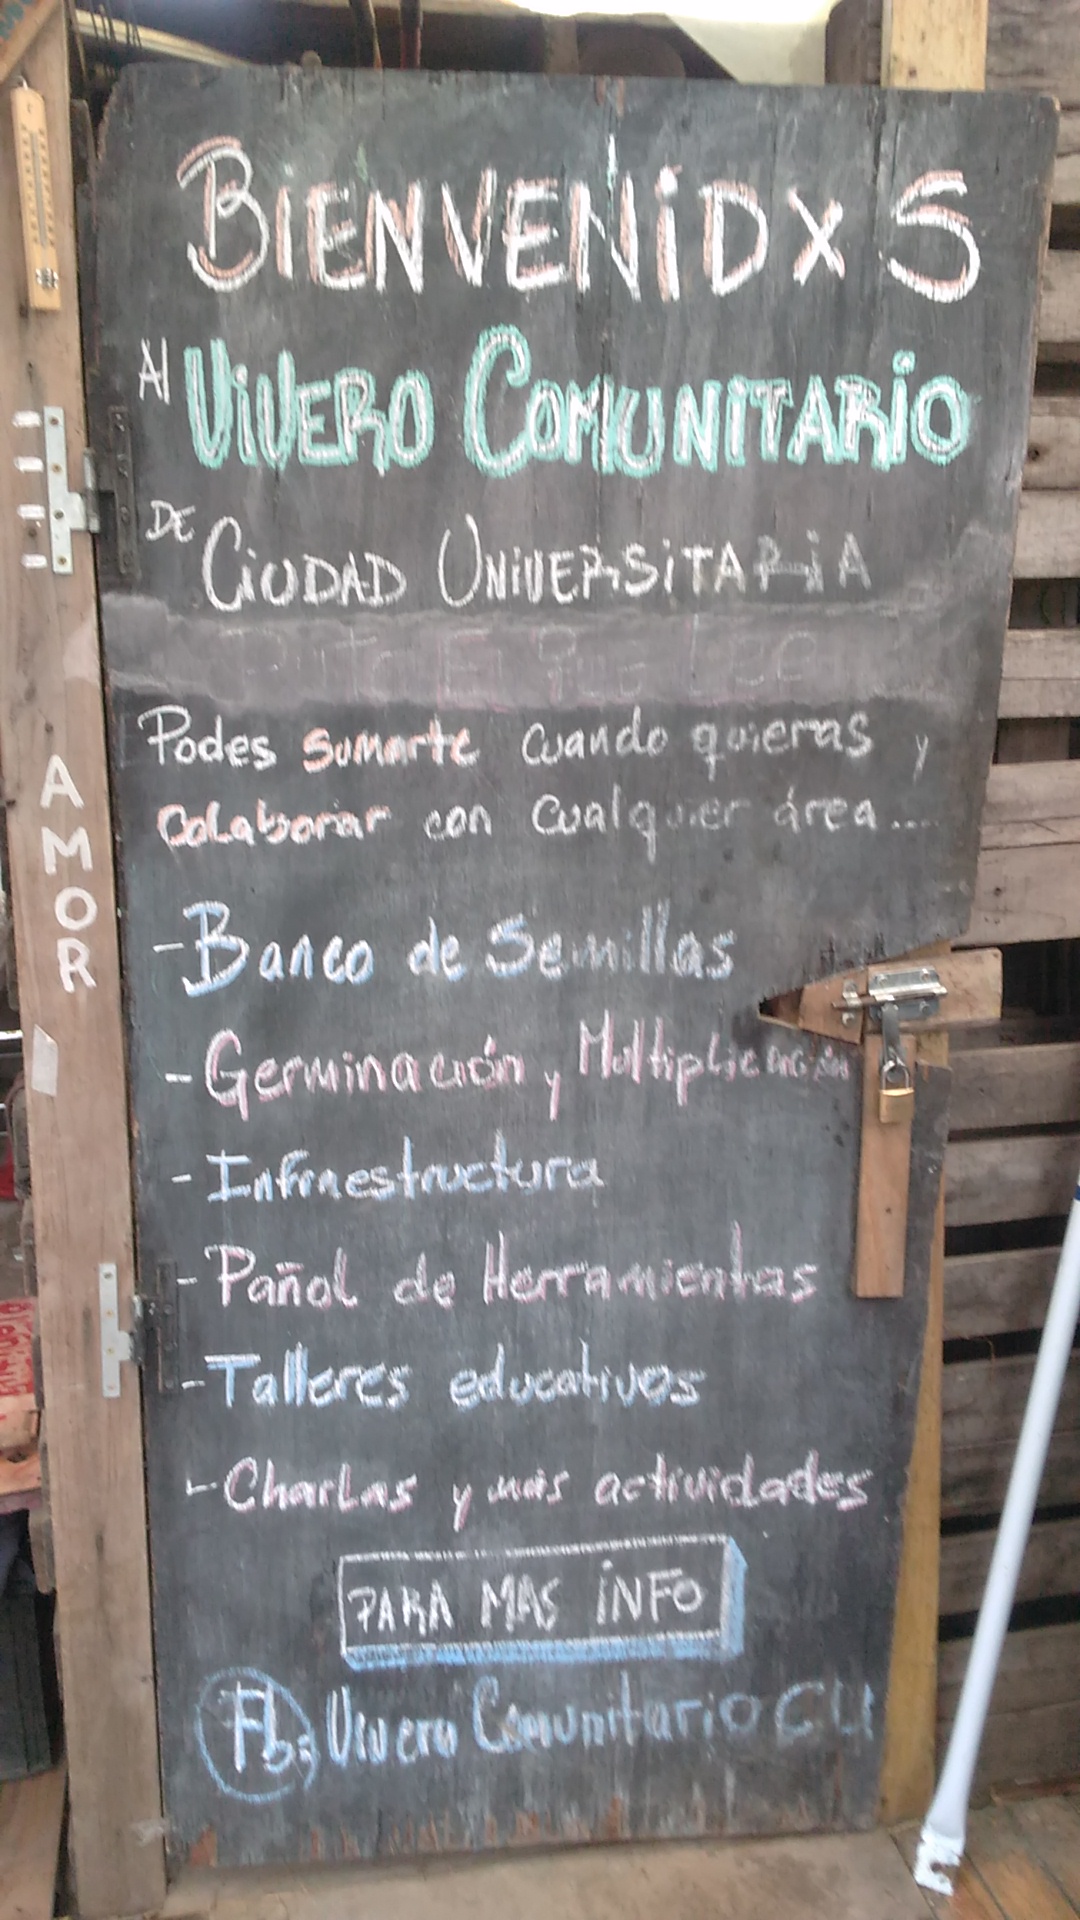 BIENVENIDXS
Al VIVERO COMUNITARIO
DE CIUDAD UNIVERSITARIA
Podes sumarte cuando quieras y
colaborar con cualquier área....
- Banco de Semillas
- Germinación y Multiplicación
- Infraestructura
- Pañol de Herramientas
- Talleres educativos
- Charlas y más actividades
PARA MAS INFO
Fb: Vivero Comunitario CU
AMOR